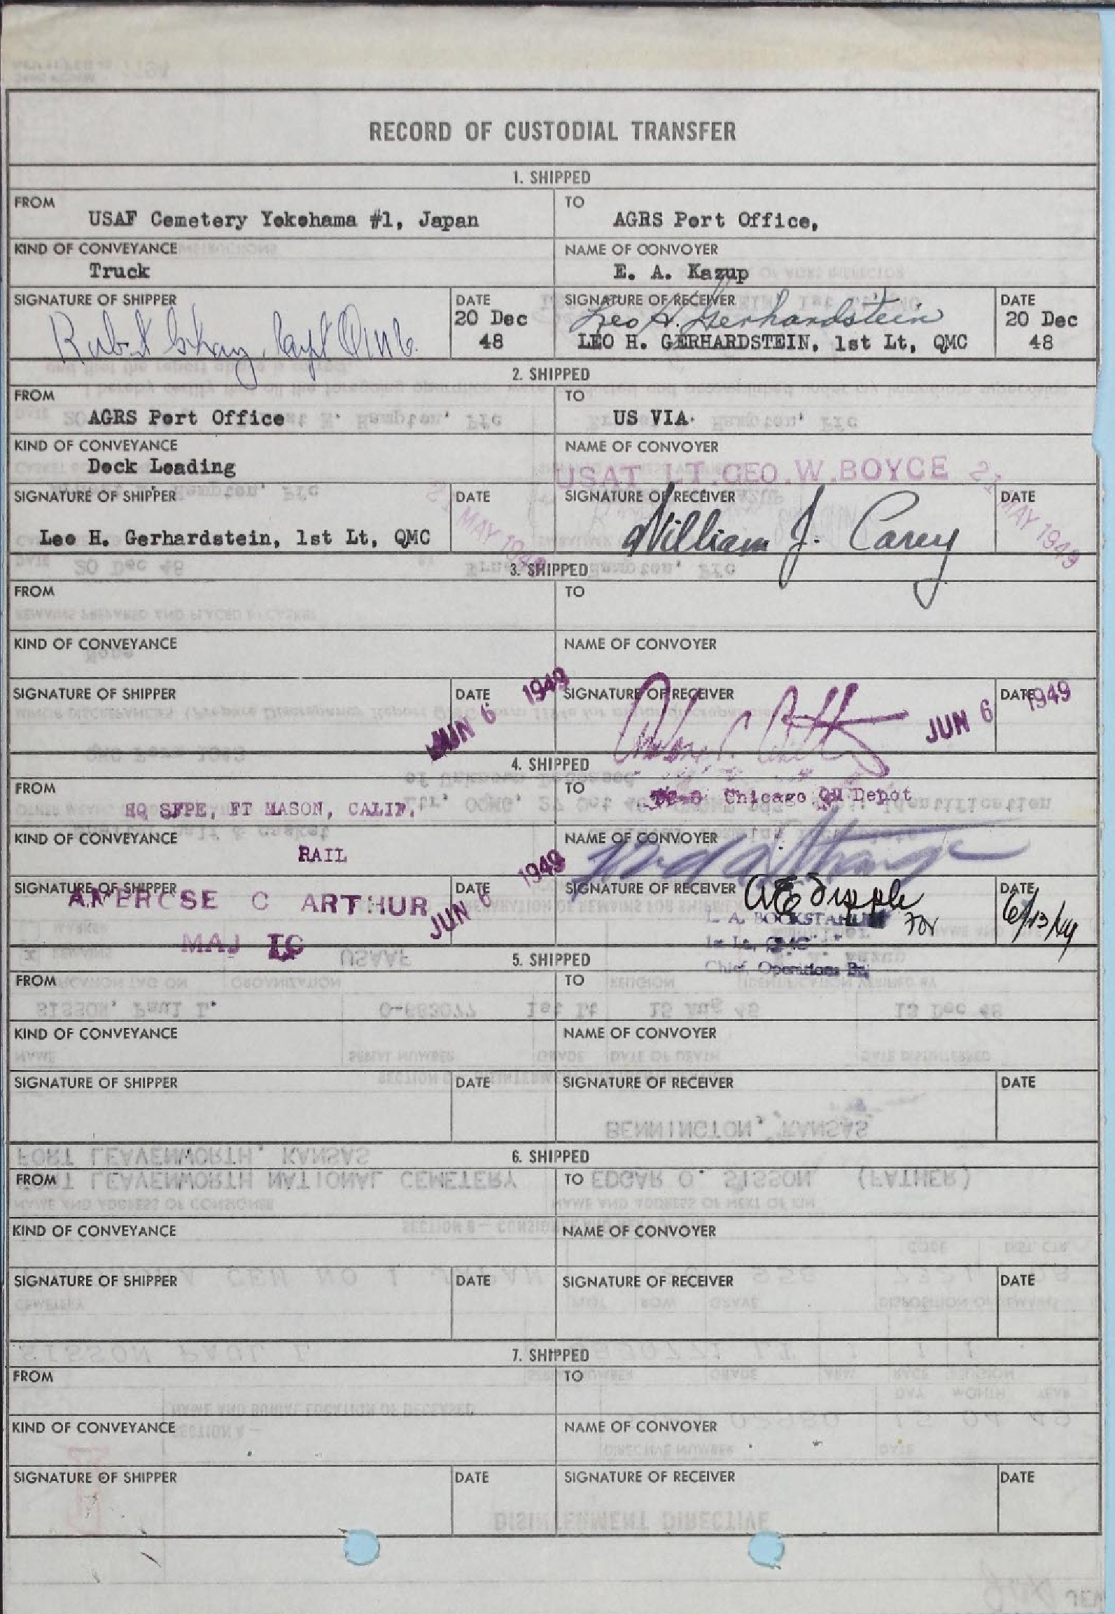 RECORD OF CUSTODIAL TRANSFER
1. SHIPPED
FROM
USAF Cemetery Yokohama #1, Japan
TO
AGRS Port Office,
KIND OF CONVEYANCE
Truck
NAME OF CONVOYER
E. A. Kazup
SIGNATURE OF SHIPPER
DATE
20 Dec
48
SIGNATURE OF RECEIVER
Leo H. Gerhardstein
LEO H. GERHARDSTEIN, 1st Lt, QMC
DATE
20 Dec
48
2. SHIPPED
FROM
AGRS Port Office
TO
US VIA.
KIND OF CONVEYANCE
Dock Loading
NAME OF CONVOYER
USAT LT.GEO.W.BOYCE
SIGNATURE OF SHIPPER
Leo H. Gerhardstein, 1st Lt, QMC
DATE
21 MAY 1949
SIGNATURE OF RECEIVER
William J. Carey
DATE
21 MAY 1949
3. SHIPPED
FROM
TO
KIND OF CONVEYANCE
NAME OF CONVOYER
SIGNATURE OF SHIPPER
DATE
JUN 6 1949
SIGNATURE OF RECEIVER
DATE
JUN 6 1949
4. SHIPPED
FROM
HQ SFPE, FT MASON, CALIF.
TO
Chicago QM Depot
KIND OF CONVEYANCE
RAIL
NAME OF CONVOYER
SIGNATURE OF SHIPPER
AMBROSE C ARTHUR
MAJ TC
DATE
JUN 6 1949
SIGNATURE OF RECEIVER
For
Chief, Operations Br.
DATE
6/13/49
5. SHIPPED
FROM
TO
KIND OF CONVEYANCE
NAME OF CONVOYER
SIGNATURE OF SHIPPER
DATE
SIGNATURE OF RECEIVER
DATE
6. SHIPPED
FROM
TO
KIND OF CONVEYANCE
NAME OF CONVOYER
SIGNATURE OF SHIPPER
DATE
SIGNATURE OF RECEIVER
DATE
7. SHIPPED
FROM
TO
KIND OF CONVEYANCE
NAME OF CONVOYER
SIGNATURE OF SHIPPER
DATE
SIGNATURE OF RECEIVER
DATE